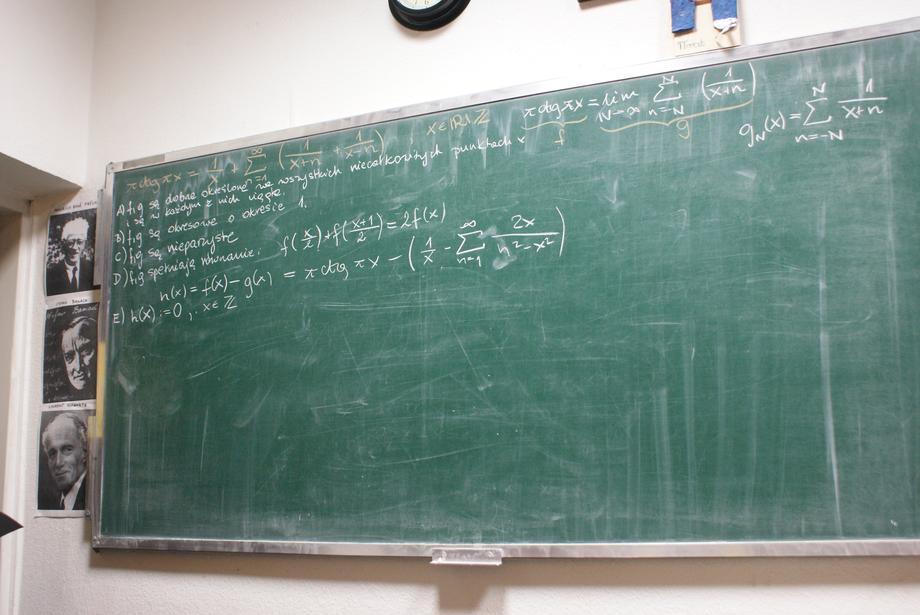 π ctg πx = 1/x + ∑_{n=1}^{∞} (1/(x+n) + 1/(x-n)) , x∈ℝ\ℤ
π ctg πx = lim_{N→∞} ∑_{n=-N}^{N} (1/(x+n))
f g
g_N(x) = ∑_{n=-N}^{N} 1/(x+n)
A) f, g są dobrze określone we wszystkich niecałkowitych punktach x
i są w każdym z nich ciągłe.
B) f, g są okresowe o okresie 1.
C) f, g są nieparzyste
D) f, g spełniają równanie: f(x/2) + f((x+1)/2) = 2f(x)
h(x) = f(x) - g(x) = π ctg πx - (1/x - ∑_{n=1}^{∞} 2x/(n²-x²))
E) h(x) := 0 , x∈ℤ
Stefan Banach
LAURENT SCHWARTZ